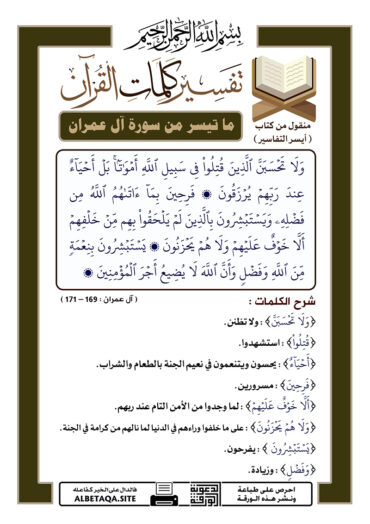 بِسْمِ اللَّهِ الرَّحْمَٰنِ الرَّحِيمِ
تفسير كلمات القرآن
منقول من كتاب
( أيسر التفاسير )
ما تيسر من سورة آل عمران
وَلَا تَحْسَبَنَّ ٱلَّذِينَ قُتِلُوا۟ فِى سَبِيلِ ٱللَّهِ أَمْوَٰتًۢا بَلْ أَحْيَآءٌ
عِندَ رَبِّهِمْ يُرْزَقُونَ ۞ فَرِحِينَ بِمَآ ءَاتَىٰهُمُ ٱللَّهُ مِن
فَضْلِهِۦ وَيَسْتَبْشِرُونَ بِٱلَّذِينَ لَمْ يَلْحَقُوا۟ بِهِم مِّنْ خَلْفِهِمْ
أَلَّا خَوْفٌ عَلَيْهِمْ وَلَا هُمْ يَحْزَنُونَ ۞ يَسْتَبْشِرُونَ بِنِعْمَةٍ
مِّنَ ٱللَّهِ وَفَضْلٍ وَأَنَّ ٱللَّهَ لَا يُضِيعُ أَجْرَ ٱلْمُؤْمِنِينَ ۞
( آل عمران : 169 – 171 )
شرح الكلمات :
﴿وَلَا تَحْسَبَنَّ﴾ : ولا تظنن.
﴿قُتِلُوا۟﴾ : استشهدوا.
﴿أَحْيَآءٌ﴾ : يحسون ويتنعمون في نعيم الجنة بالطعام والشراب.
﴿فَرِحِينَ﴾ : مسرورين.
﴿أَلَّا خَوْفٌ عَلَيْهِمْ﴾ : لما وجدوا من الأمن التام عند ربهم.
﴿وَلَا هُمْ يَحْزَنُونَ﴾ : على ما خلفوا وراءهم في الدنيا لما نالهم من كرامة في الجنة.
﴿يَسْتَبْشِرُونَ﴾ : يفرحون.
﴿وَفَضْلٍ﴾ : وزيادة.
احرص على طباعة
ونشر هذه الورقة
الدعوية
الورقة
فالدال على الخير كفاعله
ALBETAQA.SITE